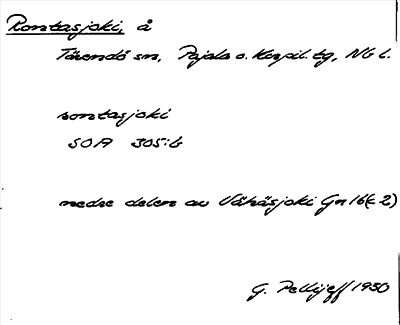 Rontasjoki, å
Tärendö sn, Pajala o. Korpil. tg, Nb l.
rontasjoki
SOA 305:6
nedre delen av Vähäsjoki Gn 16 (c 2)
G. Pellijeff 1950